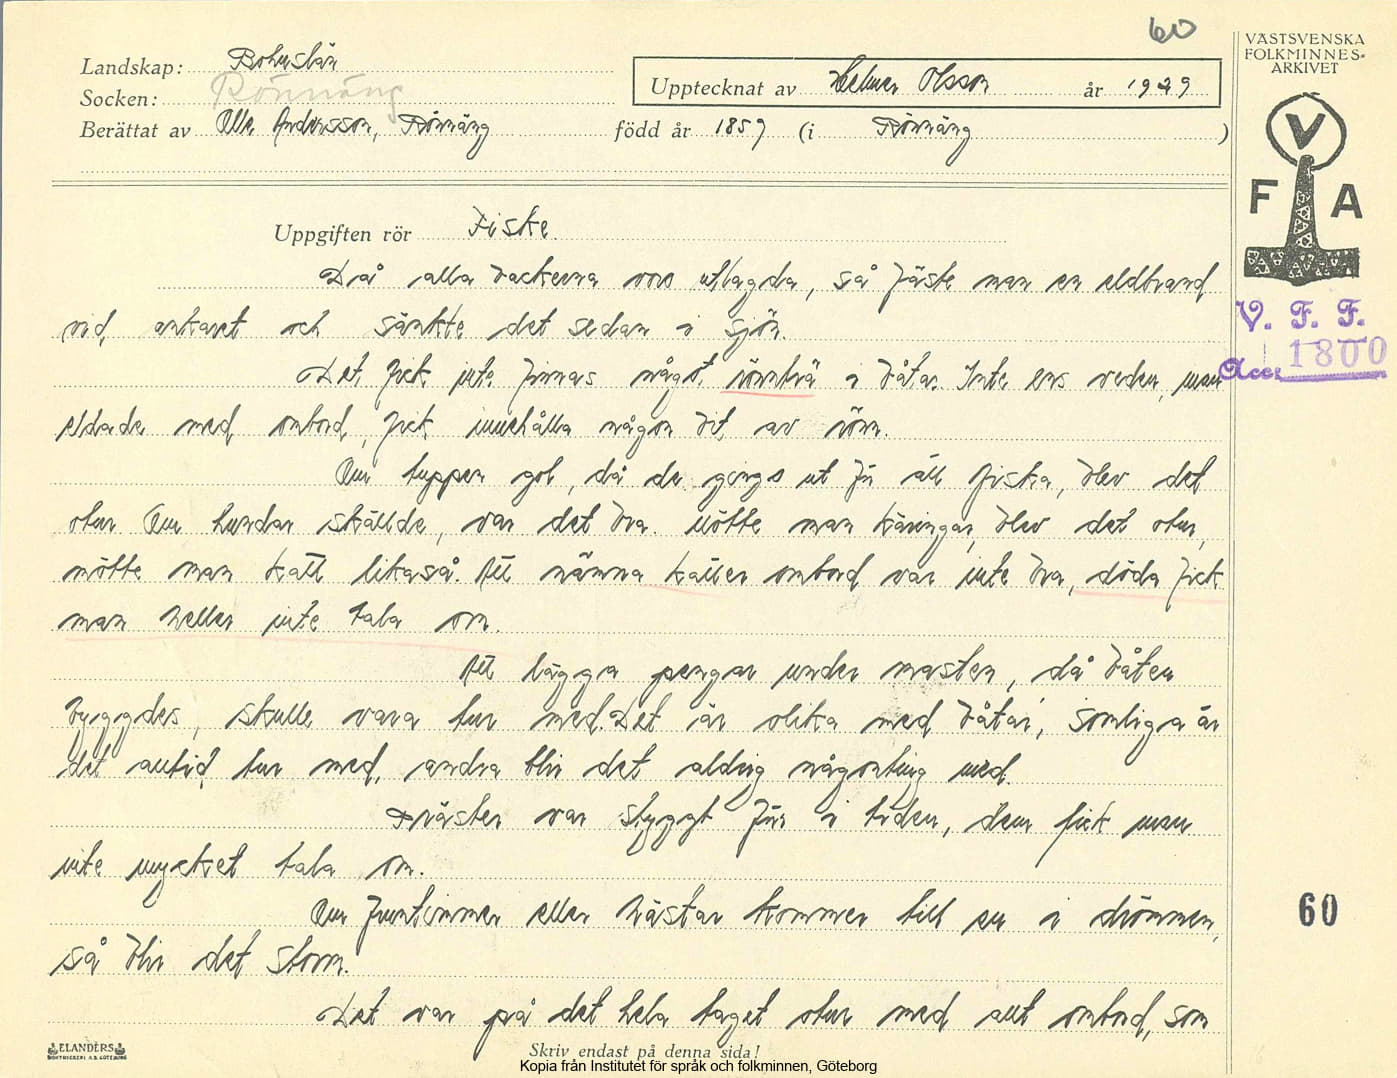 60
VÄSTSVENSKA
FOLKMINNES-
ARKIVET
Landskap: Bohuslän
Upptecknat av Helmer Olsson år 1929
Socken: Rönnäng
Berättat av Olle Andersson, Rönnäng född år 1859 (i Rönnäng)
V
F A
Uppgiften rör Fiske.
Då alla backorna voro utlagda, så fäste man en eldbrand
vid ankaret och sänkte det sedan i sjön.
V. F. F.
Acc. 1800
Det fick inte finnas något rönnträ i båtar. Inte ens veden, man
eldade med ombord, fick innehålla någon bit av rönn.
Om tuppen gol, då de gingo ut för att fiska, blev det
otur. Om hundar skällde, var det bra. Mötte man käringar, blev det otur,
mötte man katt likaså. Att nämna katter ombord var inte bra, döda fick
man heller inte tala om.
Att lägga pengar under masten, då båten
byggdes, skulle vara tur med. Det är olika med båtar, somliga är
det alltid tur med, andra blir det aldrig någonting med.
Präster var styggt förr i tiden, dem fick man
inte mycket tala om.
Om fruntimmer eller hästar kommer till en i drömmen,
så blir det storm.
60
Det var på det hela taget otur med allt ombord, som
ELANDERS
BOKTRYCKERI A.B. GÖTEBORG
Skriv endast på denna sida!
Kopia från Institutet för språk och folkminnen, Göteborg